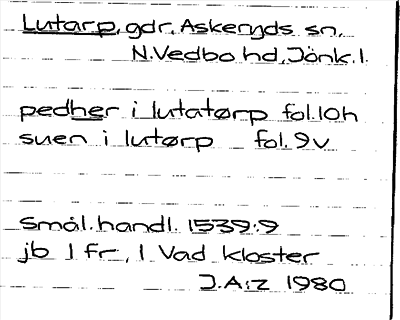 Lutarp, gdr, Askeryds sn,
N.Vedbo hd, Jönk. l.
pedher i lutatørp fol. 10h
suen i lutørp fol. 9v
Smål. handl. 1539:9
jb 1 fr, 1 Vad kloster
J.A:z 1980